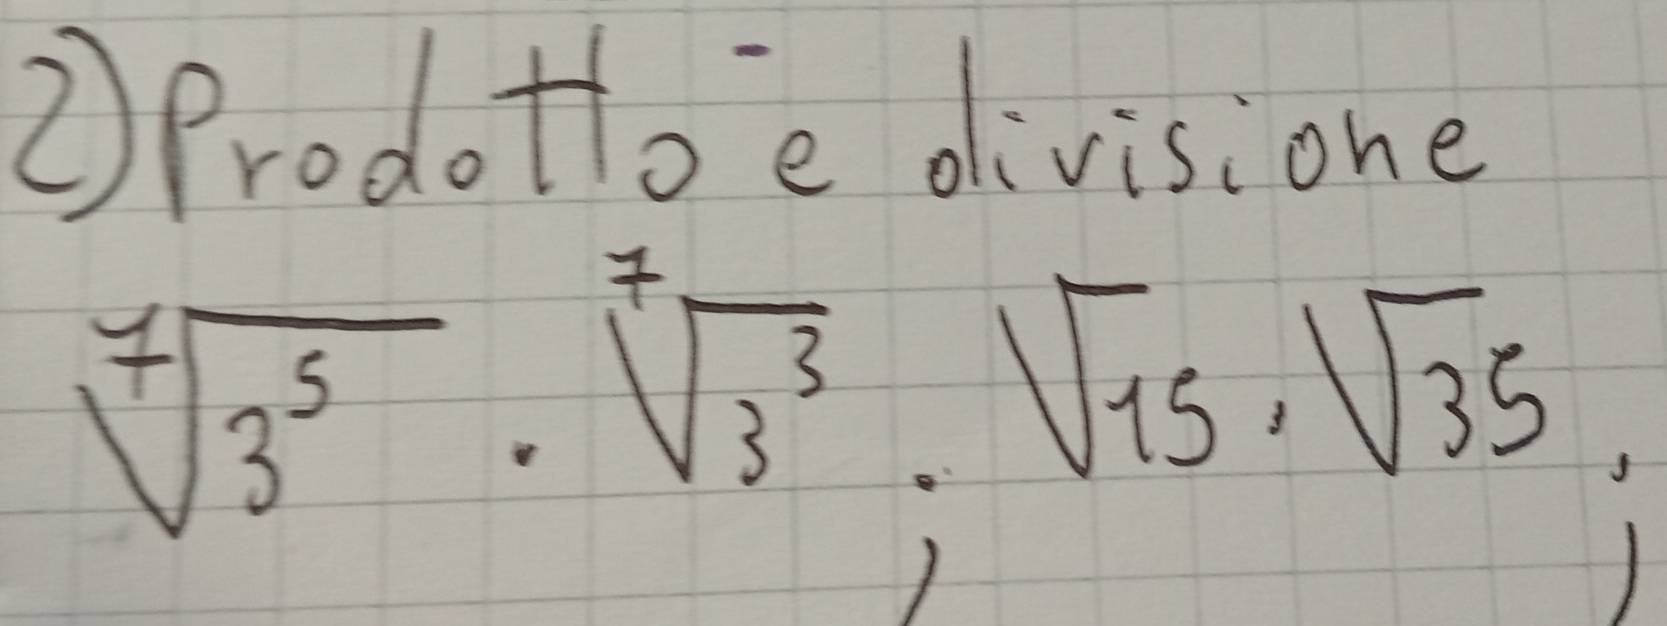 2) Prodotto e divisione
⁷√3⁵ · ⁷√3³ ; √15 · √35 ;